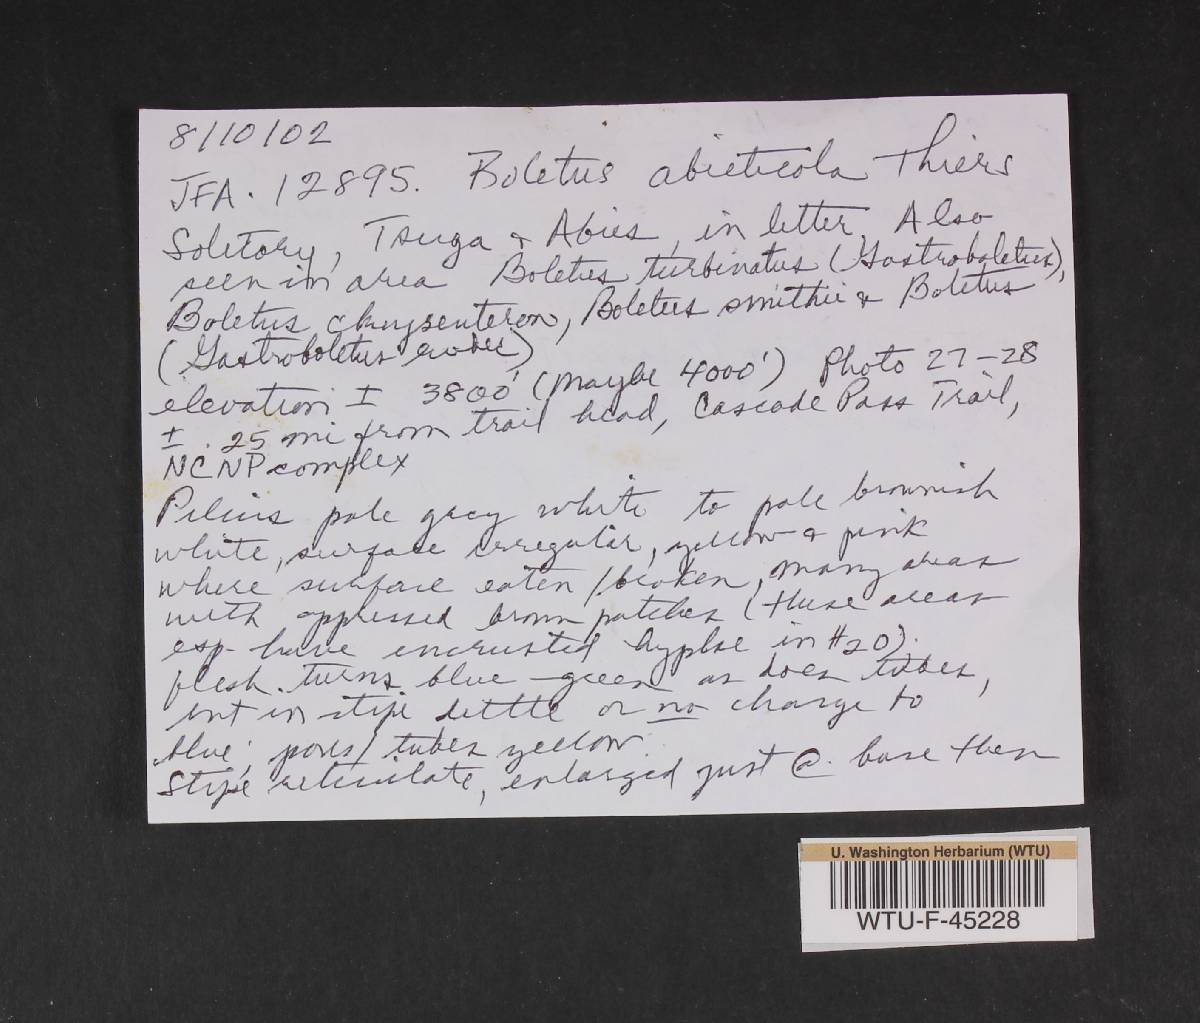 8/10/02
JFA. 12895. Boletus abieticola Thiers
Solitory, Tsuga & Abies, in litter. Also
seen in area Boletus turbinatus (Gastroboletus),
Boletus chrysenteron, Boletus smithii & Boletus
(Gastroboletus ruber)
elevation ± 3800' (maybe 4000') Photo 27-28
± .25 mi from trail head, Cascade Pass Trail,
NCNP complex
Pileus pale grey white to pale brownish
white, surface irregular, yellow & pink
where surface eaten/broken, many areas
with appressed brown patches (these areas
esp. have encrusted hyphae in H20).
flesh turns blue-green as does tubes,
but in stipe little or no change to
blue; pores/tubes yellow.
Stipe reticulate, enlarged just @ base then
U. Washington Herbarium (WTU)
WTU-F-45228